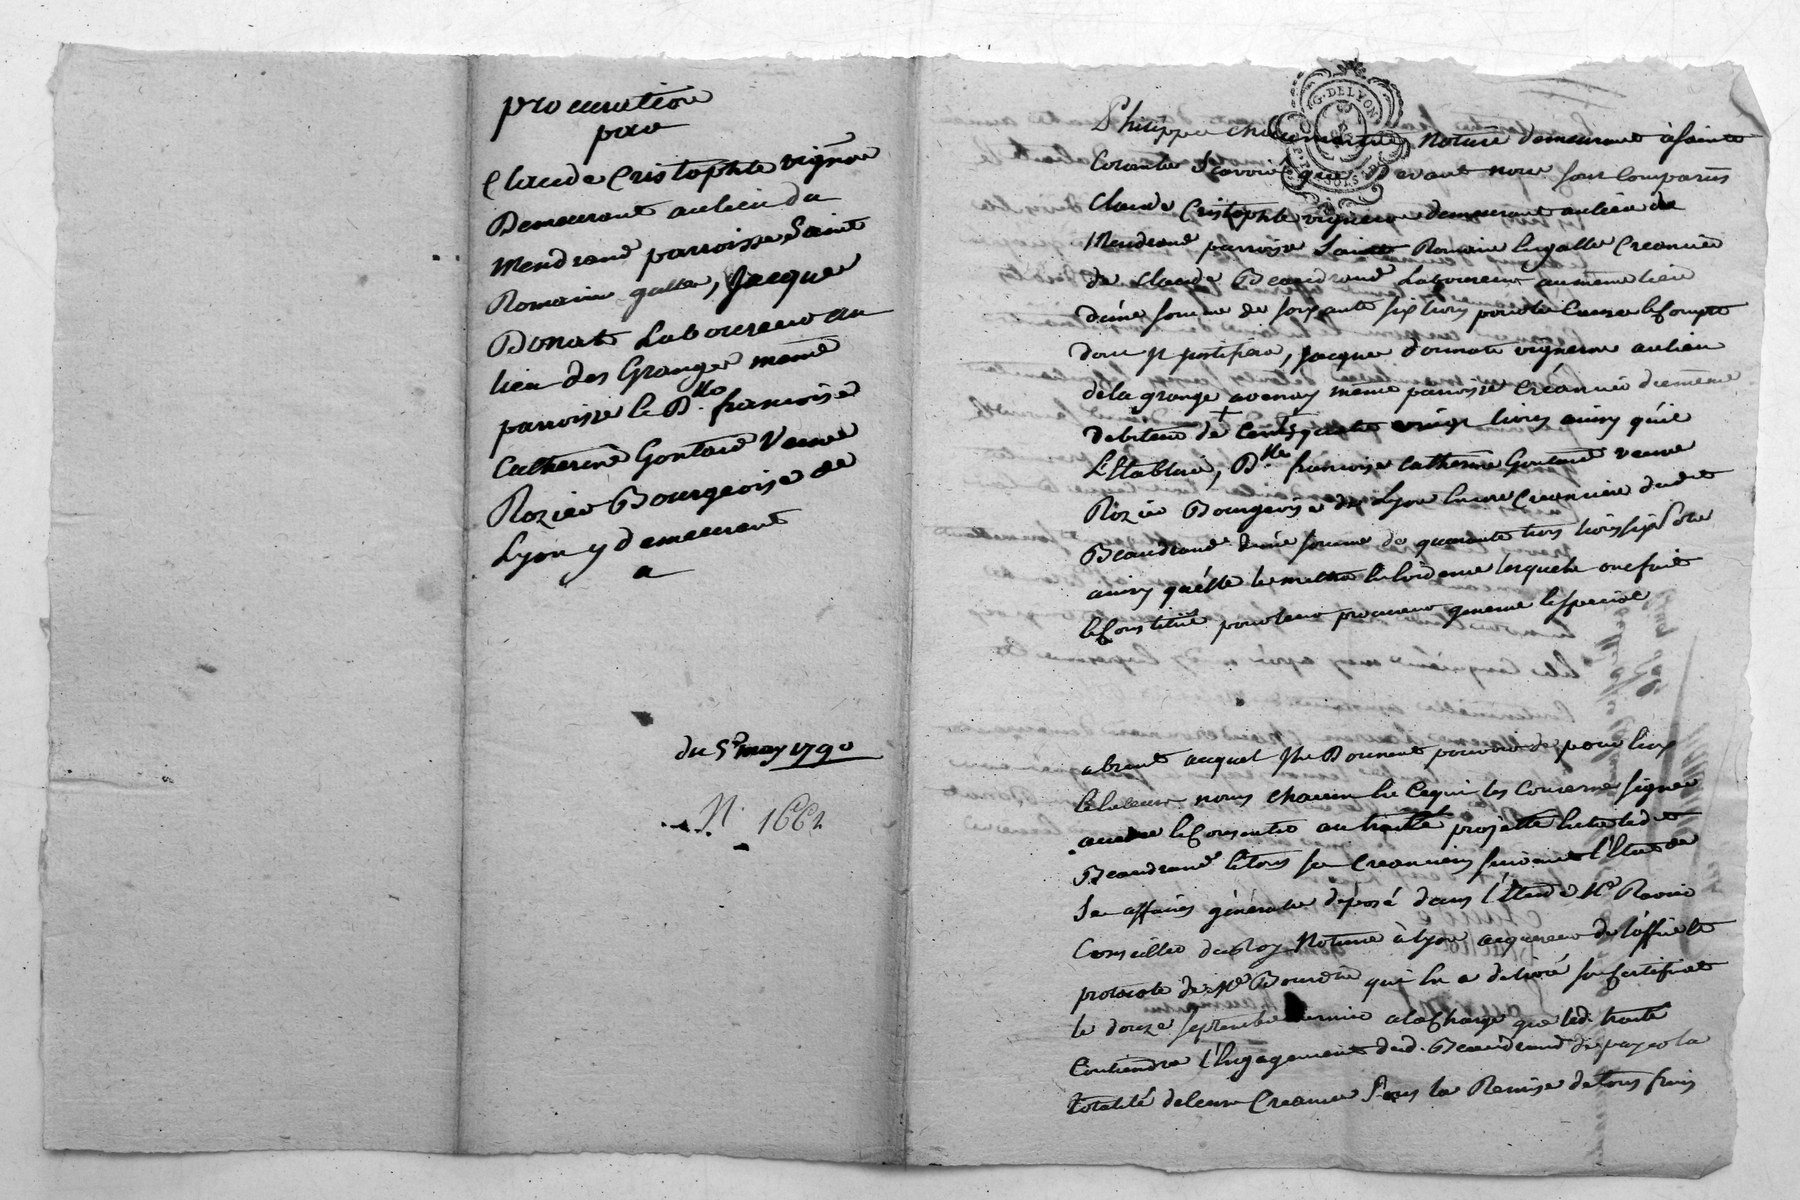 procuration
pour
Claude Cristophle vigneron
Demeurant au lieu du
Mendrand parroisse Saint
Romain galler, Jacque
Donat Laboureur au
lieu des Granger meme
parroisse le D.lle francoise
Catherine Gontard Veuve
Rozier Bourgeoise de
Lyon y demeurant
a
du 5e may 1790
N. 1662
G. DE LYON
Philippe notaire demeurant à Sainte
Colombe Scavoir que devant nous sont Comparus
Claude Cristophle vigneron demeurant au lieu du
Mendrand parroisse Saint Romain Creancier
de Claude Beaudrand Laboureur au meme lieu
d'une somme de soixante six livres pour le Compte
dont il justifiera, Jacque donnate vigneron au lieu
de la grange même parroisse Créancier du même
debiteur de Cent quatre vingt livres ainsy qu'il
L'Etablira, D.lle francoise Catherine Gontard veuve
Rozier Bourgeoise de Lyon Creanciere dudit
Beaudrand d'une somme de quarante trois livres six sols
ainsy qu'elle le mettra En Evidence lesquels ont fait
Et Constitué pour leur procureur general Et special
absent auquel Ils Donnent pouvoir de pour Eux
Et En leur noms chacun En Ce qui les Concerne signer
Et Consentir au traitté projetté Entre led.
Beaudrand Et tous ses Creanciers suivant l'Etat de
Ses affaires générale déposé dans l'Etude Me
Conseiller du Roy Notaire à Lyon acquereur de l'office Et
protocole de Me Bourdin qui En a delivré son Certificat
le douze Septembre dernier a la Charge que led. traité
Contiendra l'Engagement dud. Beaudrand de payer la
totalité de leur Creance Sous la Remise de tous frais